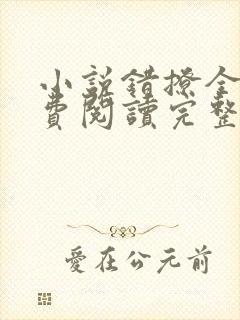 小説錯撩全
費閱讀完整
愛在公元前